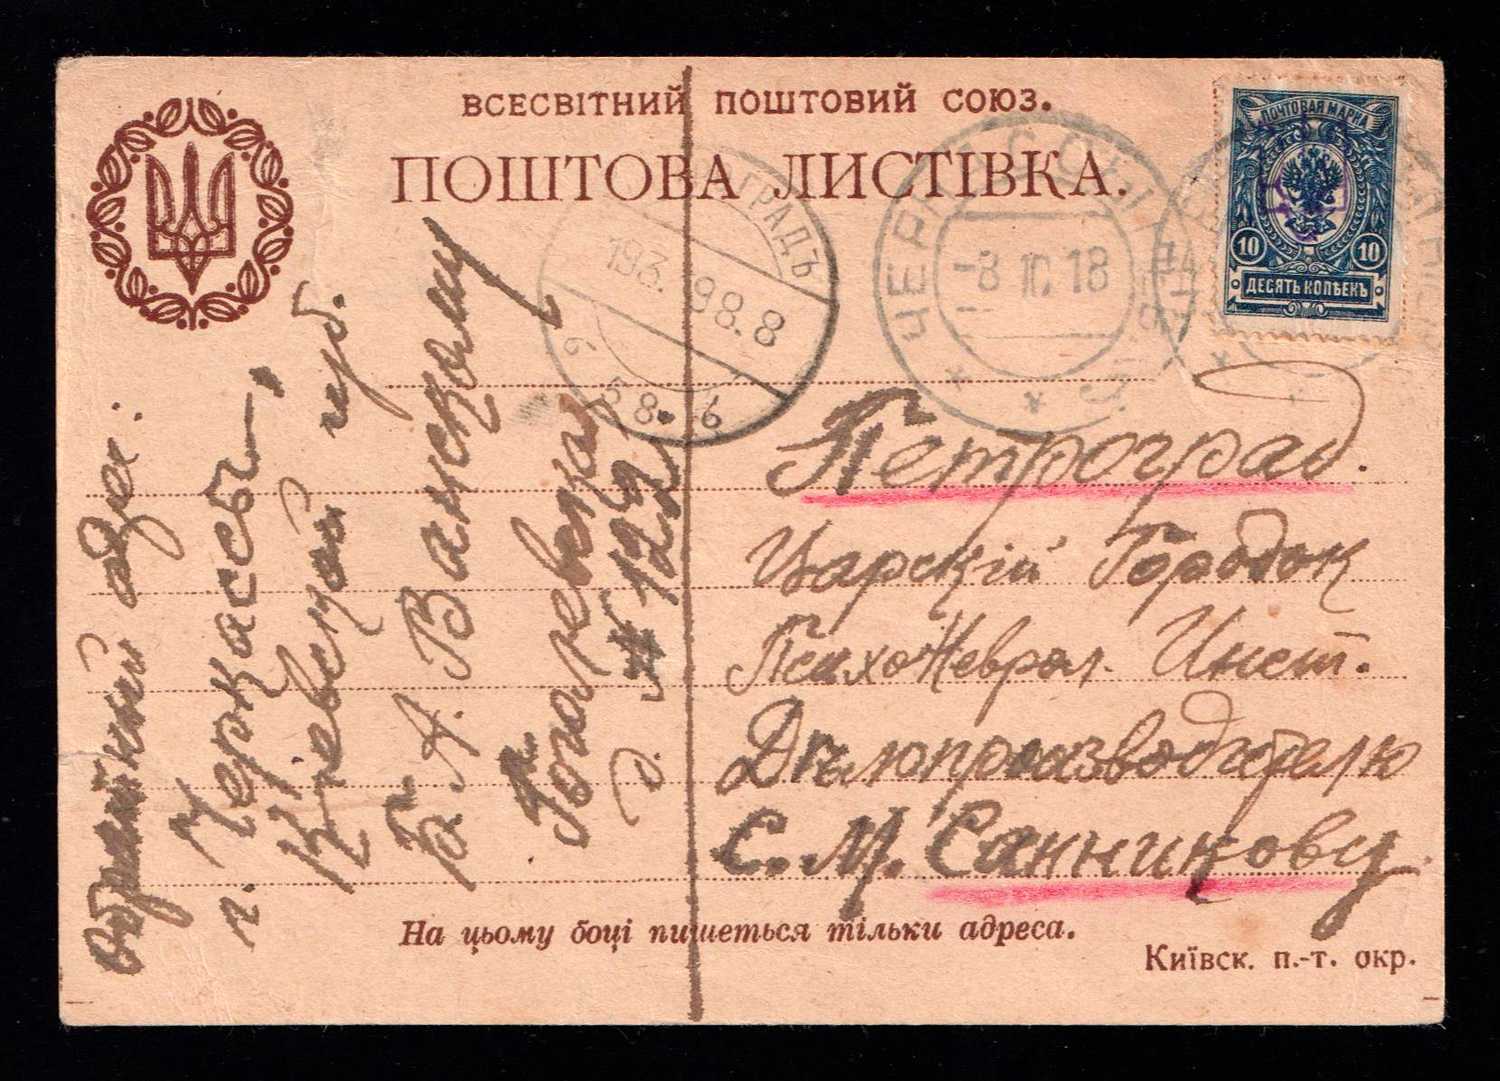 ВСЕСВІТНИЙ ПОШТОВИЙ СОЮЗ.
ПОШТОВА ЛИСТІВКА.
ПОЧТОВАЯ МАРКА
10 10
ДЕСЯТЬ КОПѢЕКЪ
ГРАДЪ
193. 98.8
ЧЕРКАСЫ
-8 IC 18
Петроград.
Царскій Городок
ПсихоНеврол. Инст.
Дѣлопроизводителю
С. М. Санникову.
обратный адр:
г. Черкассы,
Кіевской губ.
Б. А. Ванскому
Гоголевская
д. № 122
На цьому боці пишеться тільки адреса.
Київск. п.-т. окр.